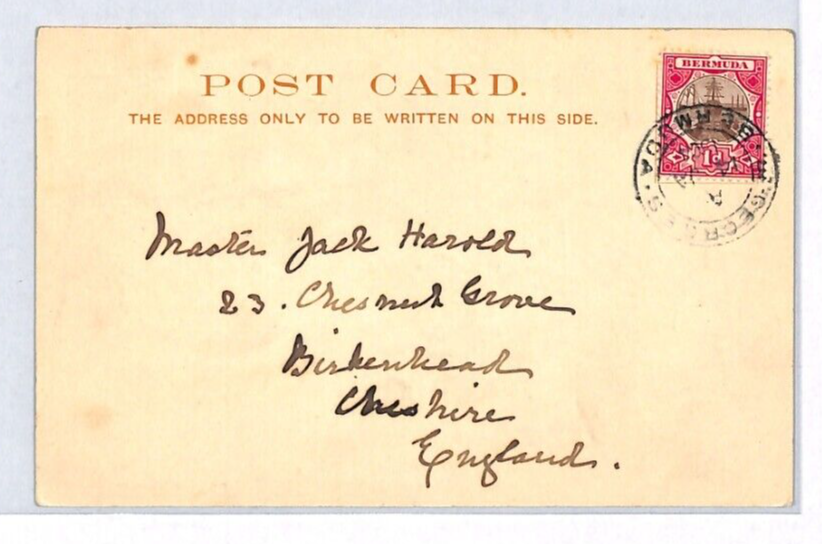 POST CARD.
THE ADDRESS ONLY TO BE WRITTEN ON THIS SIDE.
BERMUDA
1d
ST GEORGES BERMUDA
Master Jack Harold
23. Chesnut Grove
Birkenhead
Cheshire
England.